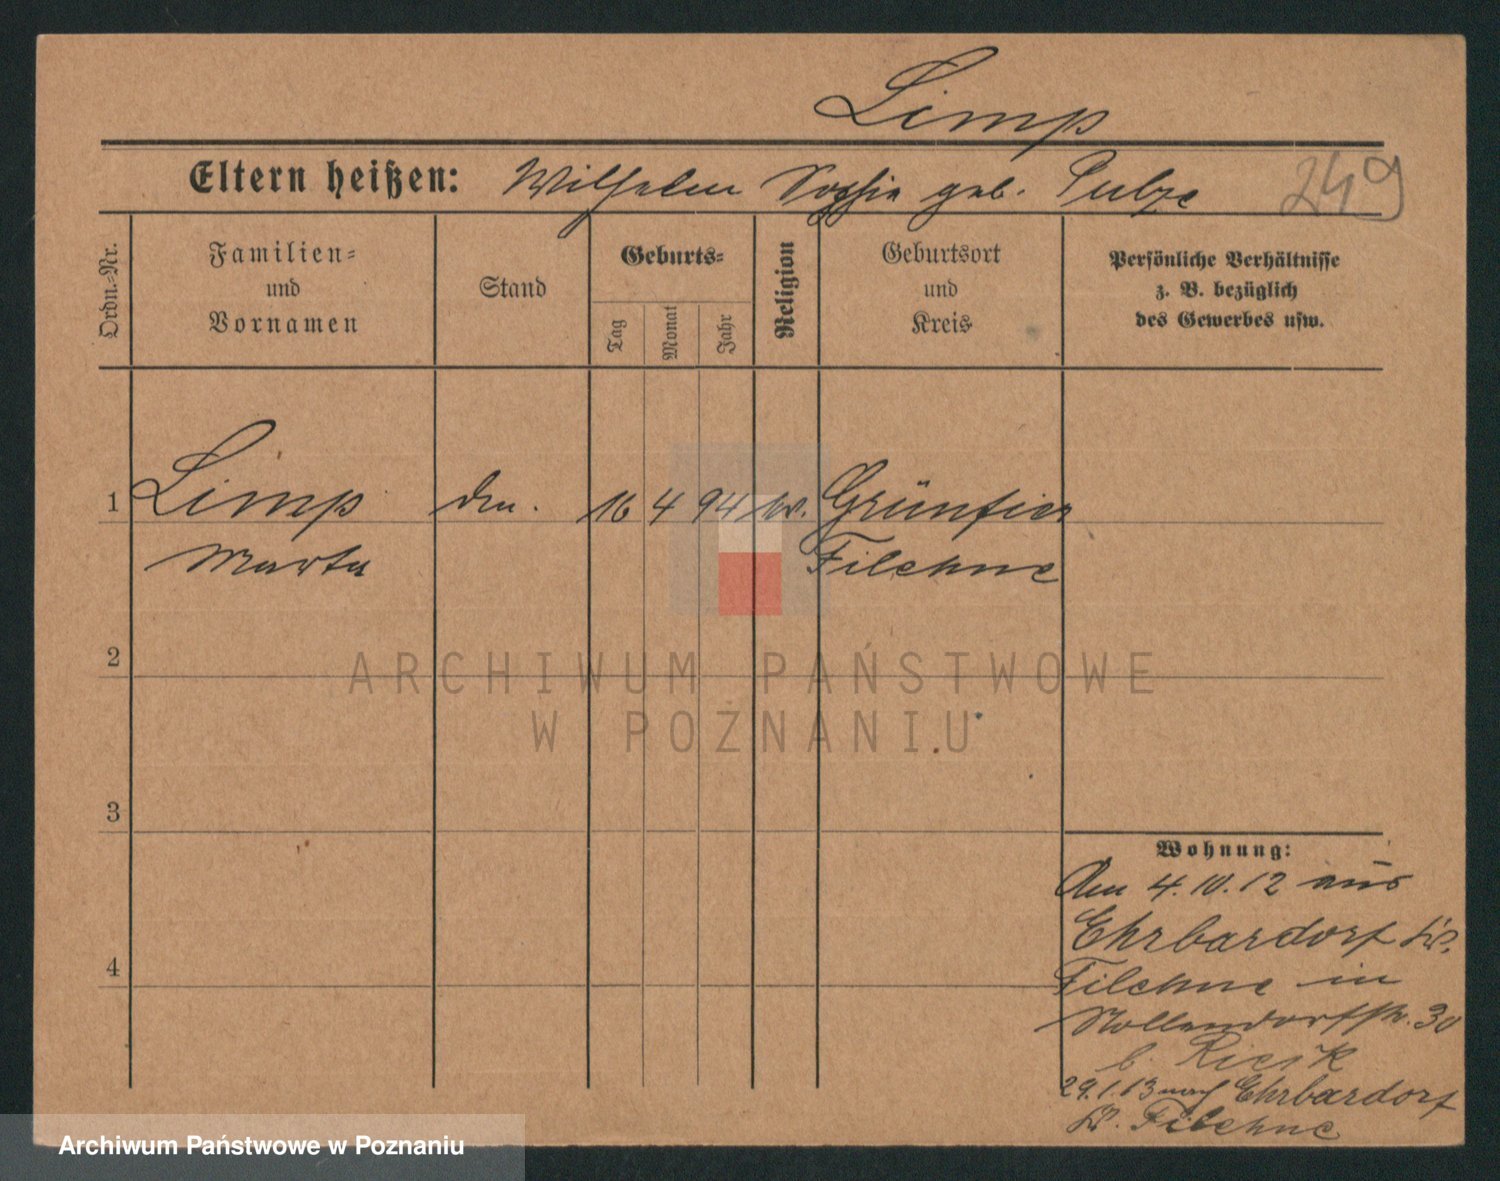 Limp
Eltern heißen: Wilhelm Sophie geb.
249
Ordn.-Nr.
Familien- und Vornamen
Stand
Geburts-
Tag
Monat
Jahr
Religion
Geburtsort und Kreis
Persönliche Verhältnisse
z. B. bezüglich
des Gewerbes usw.
1 Limp 16 4 94 ev. Grünfier
Marta Filehne
2
ARCHIWUM PAŃSTWOWE
W POZNANIU
3
Wohnung:
Am 4.10.12 aus
Ehrbardorf Kr.
4
Filehne in
Nollendorfstr. 30
b.
29.1.13 nach Ehrbardorf
Kr. Filehne
Archiwum Państwowe w Poznaniu